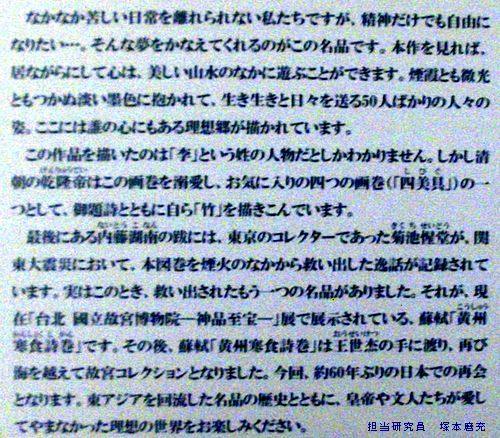 なかなか苦しい日常を離れられない私たちですが、精神だけでも自由に
なりたい…。そんな夢をかなえてくれるのがこの名品です。本作を見れば、
居ながらにして心は、美しい山水のなかに遊ぶことができます。煙霞とも微光
ともつかぬ淡い墨色に抱かれて、生き生きと日々を送る50人ばかりの人々の
姿。ここには誰の心にもある理想郷が描かれています。
この作品を描いたのは「李」という姓の人物だとしかわかりません。しかし清
朝の乾隆帝はこの画巻を溺愛し、お気に入りの四つの画巻(「四美具」)の一
つとして、御題詩とともに自ら「竹」を描きこんでいます。
最後にある内藤湖南の跋には、東京のコレクターであった菊池惺堂が、関
東大震災において、本図巻を煙火のなかから救い出した逸話が記録されて
います。実はこのとき、救い出されたもう一つの名品がありました。それが、現
在「台北 國立故宮博物院―神品至宝―」展で展示されている、蘇軾「黄州
寒食詩巻」です。その後、蘇軾「黄州寒食詩巻」は王世杰の手に渡り、再び
海を越えて故宮コレクションとなりました。今回、約60年ぶりの日本での再会
となります。東アジアを回流した名品の歴史とともに、皇帝や文人たちが愛し
てやまなかった理想の世界をお楽しみください。
担当研究員 塚本麿充